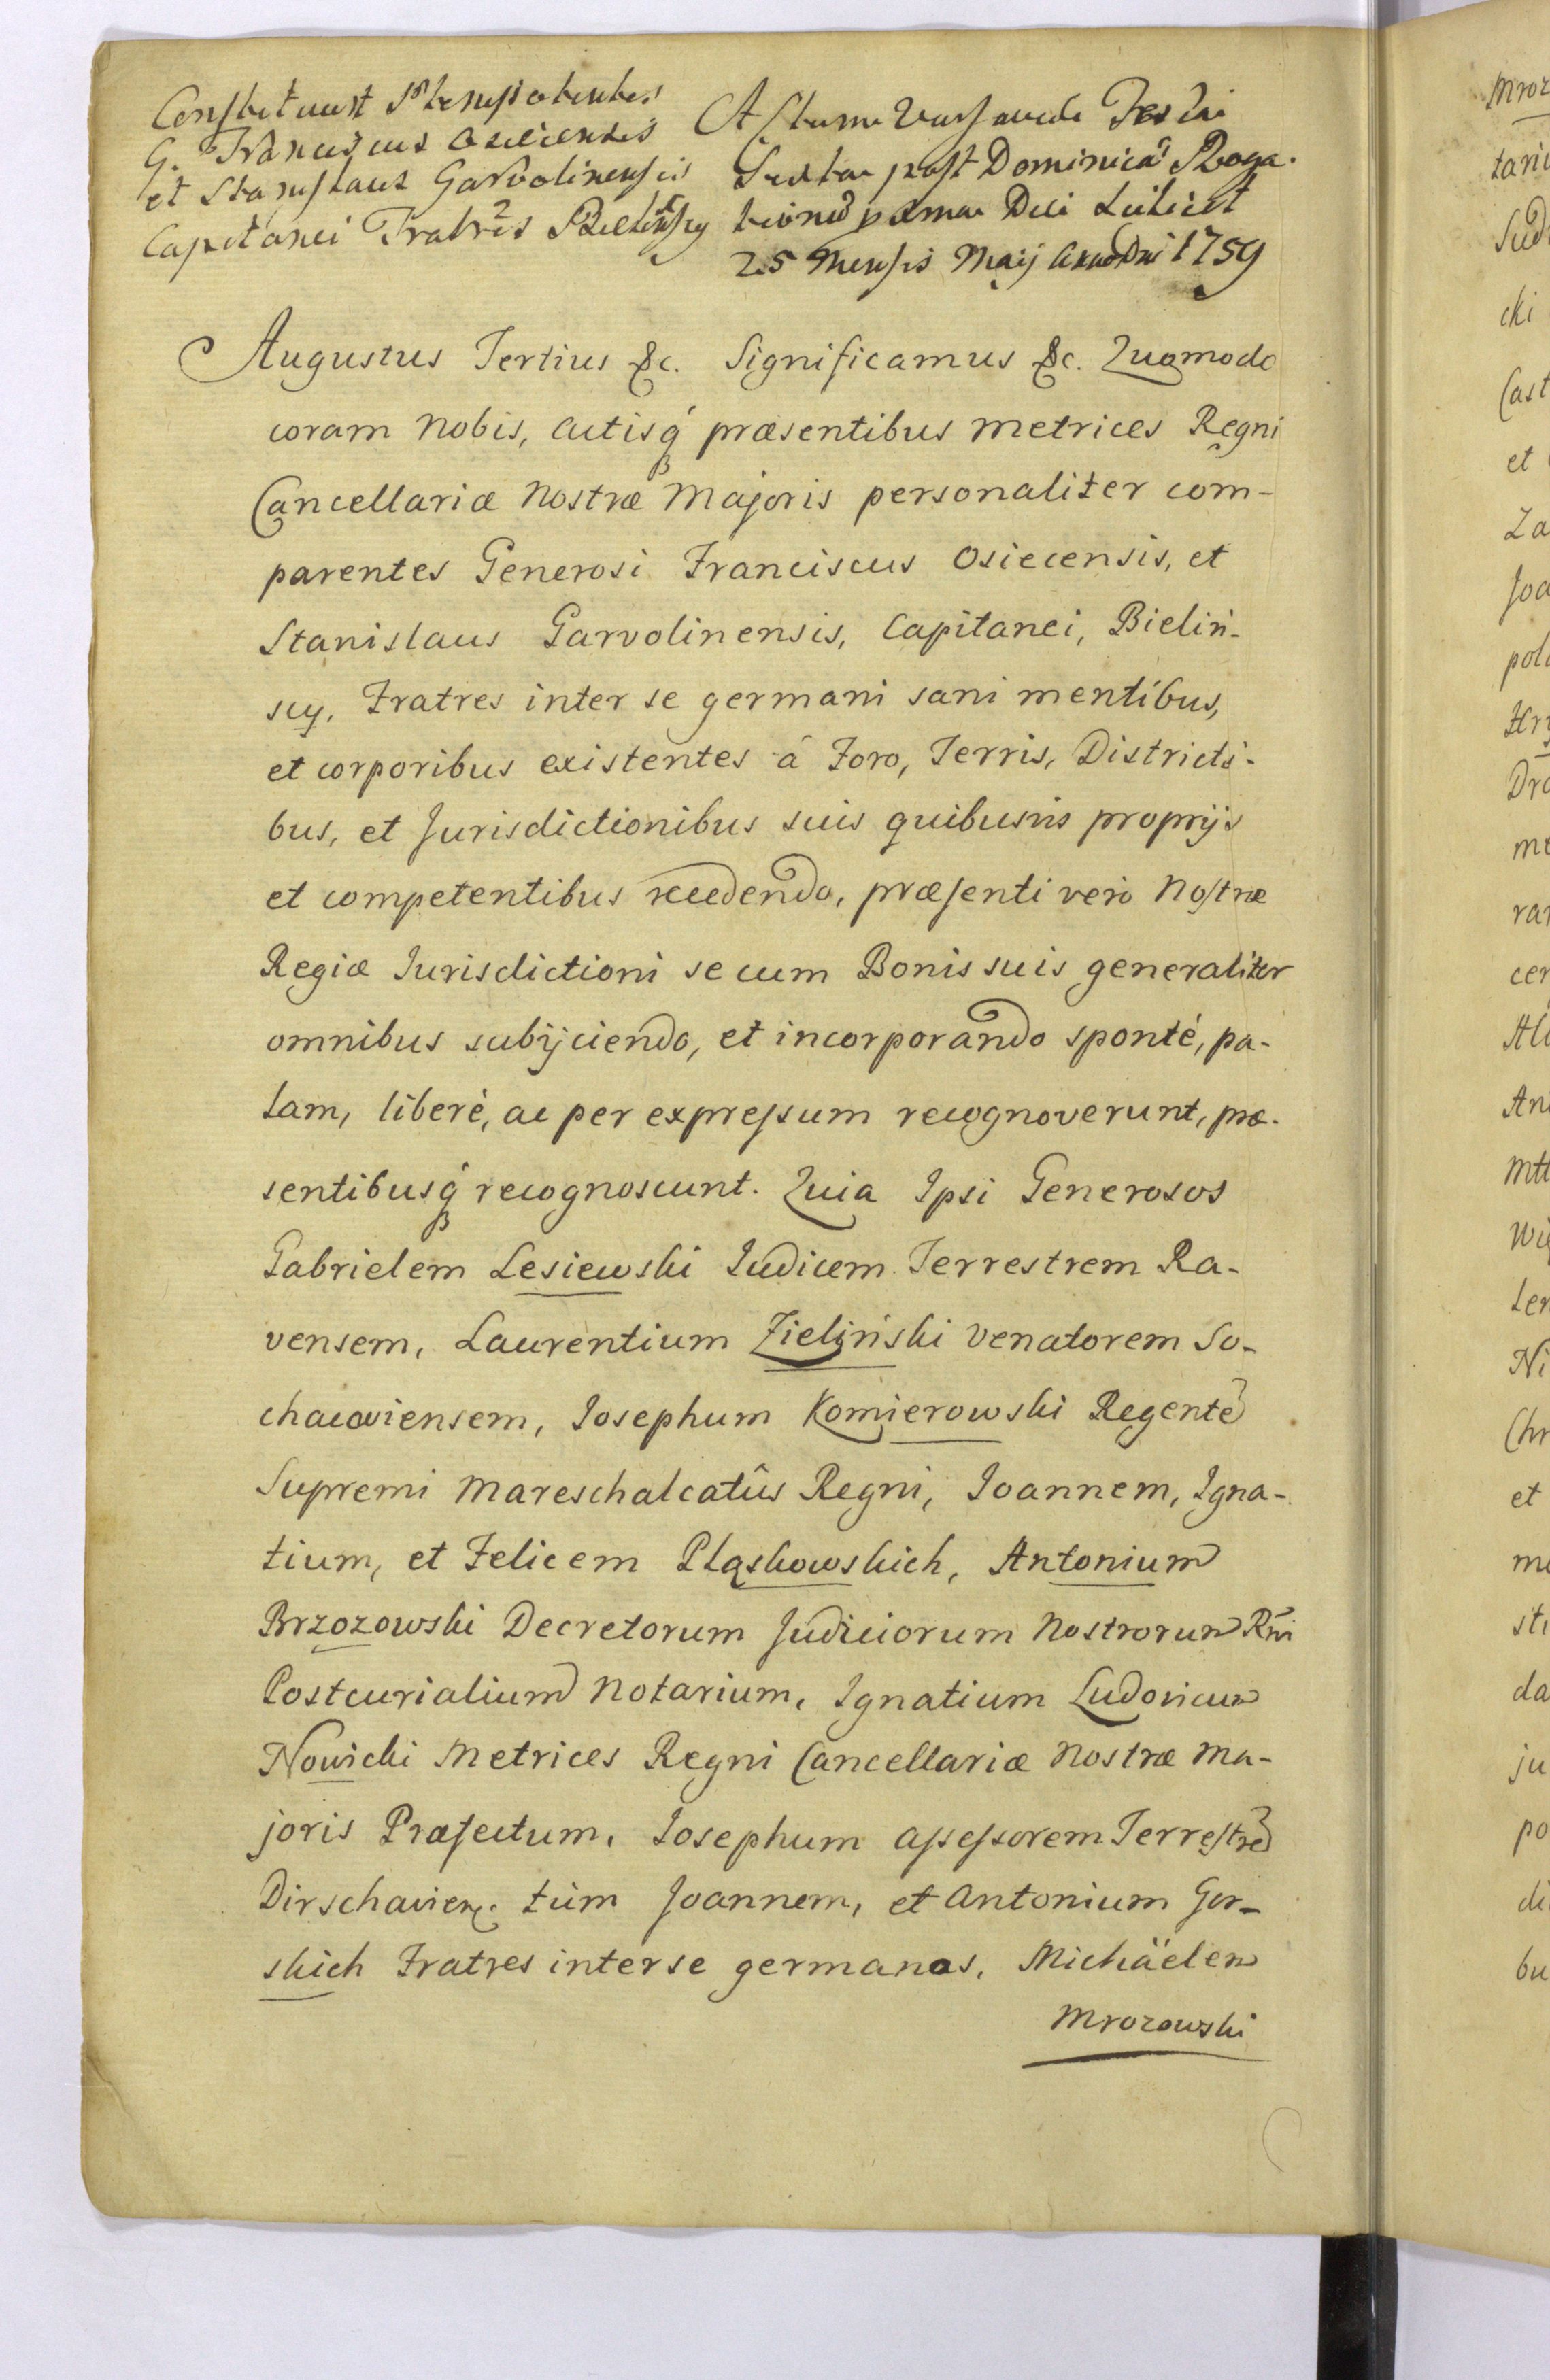 Constituunt Plenipotentes
G. Franciscus Osiecensis
et Stanislaus Garvolinensis
Capitanei Fratres Bielińscy
Actum Varsaviæ Feria
Sexta post Dominicam Roga-
tionum proxima Die scilicet
25 Mensis Maij Anno Dni 1759
Augustus Tertius &c. Significamus &c. Quomodo
coram Nobis, Actisq́ præsentibus Metrices Regni
Cancellariæ Nostræ Majoris personaliter com-
parentes Generosi Franciscus Osiecensis, et
Stanislaus Garvolinensis, Capitanei, Bieliń-
scy, Fratres inter se germani sani mentibus,
et corporibus existentes â Foro, Terris, Districti-
bus, et Jurisdictionibus suis quibusvis proprijs
et competentibus recedendo, præsenti verò Nostræ
Regiæ Jurisdictioni se cum Bonis suis generaliter
omnibus subijciendo, et incorporando spontè, pa-
lam, liberè, ac per expressum recognoverunt, præ-
sentibusq́ recognoscunt. Quia Ipsi Generosos
Gabrielem Lesiewski Judicem Terrestrem Ra-
vensem, Laurentium Zieliński Venatorem So-
chacoviensem, Josephum Komierowski Regentẽ
Supremi Mareschalcatûs Regni, Joannem, Igna-
tium, et Felicem Pląskowskich, Antonium
Brzozowski Decretorum Judiciorum Nostrorum Rni
Postcurialium Notarium, Ignatium Ludovicum
Nowicki Metrices Regni Cancellariæ Nostræ Ma-
joris Præfectum, Josephum Assessorem Terrestrẽ
Dirschavien. tùm Joannem, et Antonium Gor-
skich Fratres inter se germanos, Michäelem
Mrozowski
Mroz
tari
Sud
cki
Cast
et
Za
Joa
pol
Hr
Dr
me
ra
cen
Al
An
Wi
ler
Ni
Chr
et
me
sti
da
ju
po
di
bu